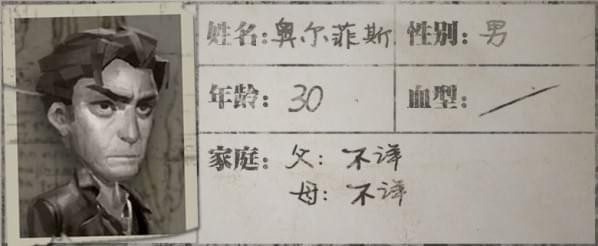 姓名:奥尔菲斯 性别:男
年龄:30 血型:／
家庭:父:不详
母:不详